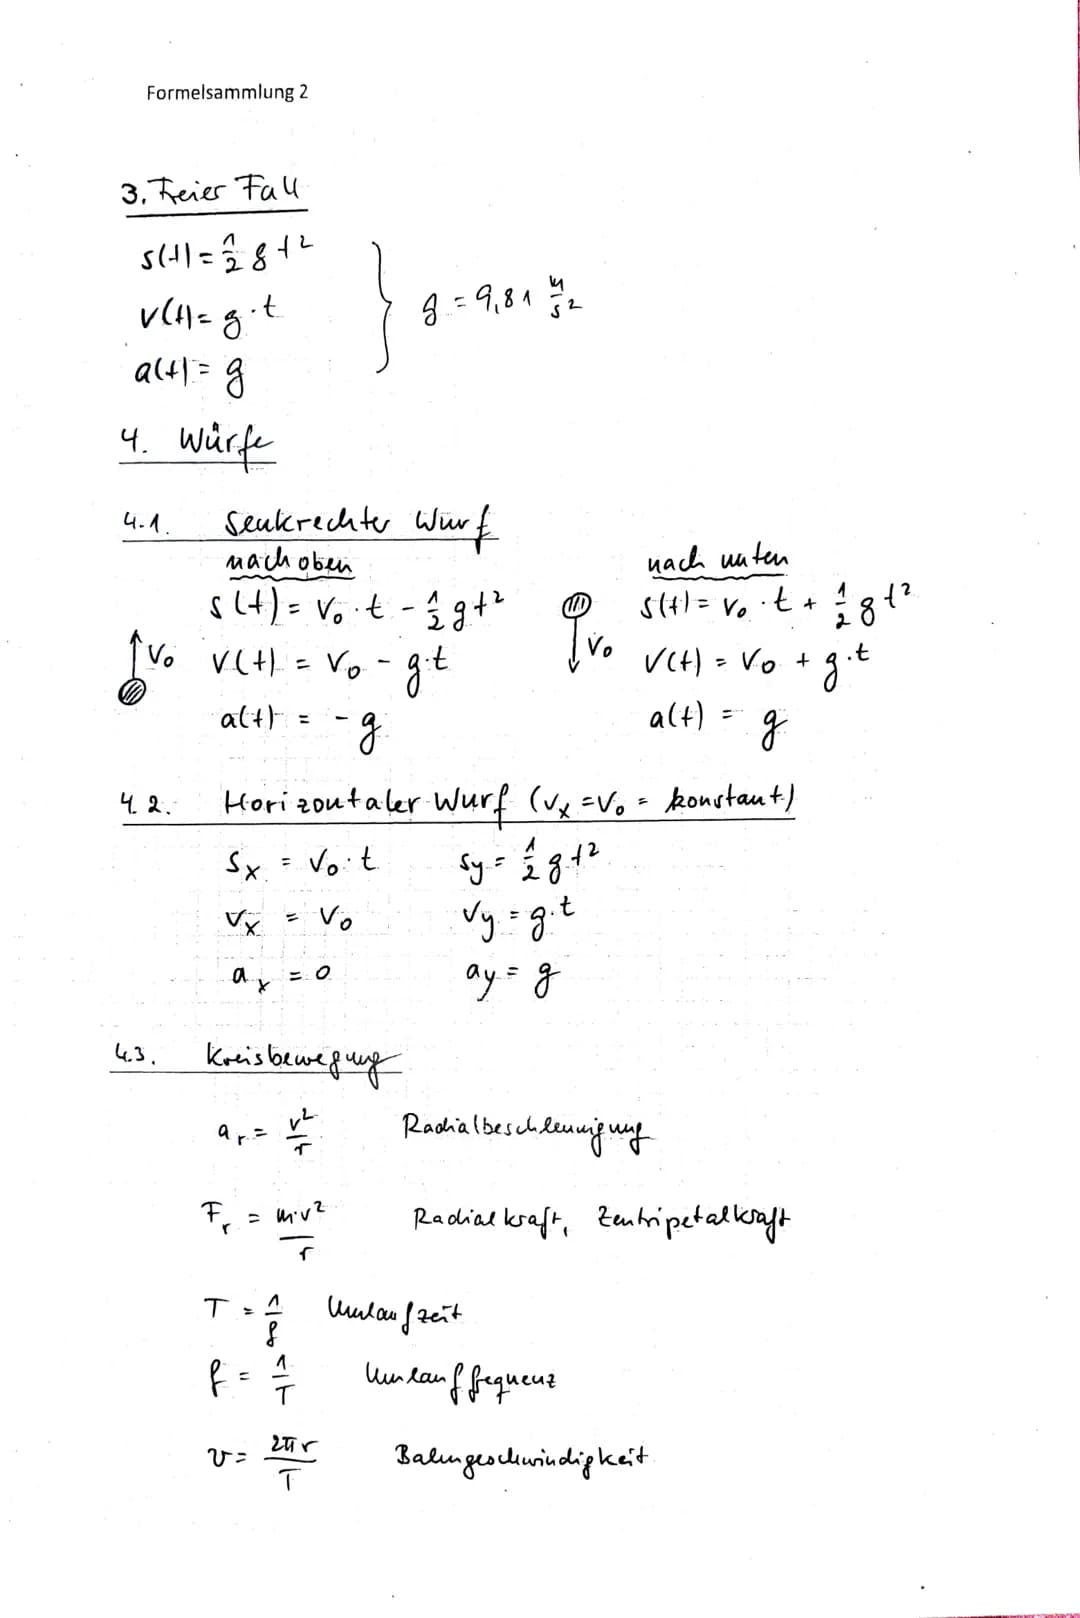 Formelsammlung 2
3. Freier Fall
s(t) = 1/2 g t²
v(t) = g·t
a(t) = g
g = 9,81 m/s²
4. Würfe
4.1. Senkrechter Wurf
nach oben
s(t) = v₀·t - 1/2 g t²
v₀ v(t) = v₀ - g·t
a(t) = -g
nach unten
s(t) = v₀·t + 1/2 g t²
v₀ v(t) = v₀ + g·t
a(t) = g
4.2. Horizontaler Wurf (vₓ = v₀ = konstant)
sₓ = v₀·t sy = 1/2 g t²
vₓ = v₀ vy = g·t
aₓ = 0 ay = g
4.3. Kreisbewegung
aᵣ = v²/r Radialbeschleunigung
Fᵣ = m·v²/r Radialkraft, Zentripetalkraft
T = 1/f Umlaufzeit
f = 1/T Umlauffequenz
v = 2πr/T Bahngeschwindigkeit